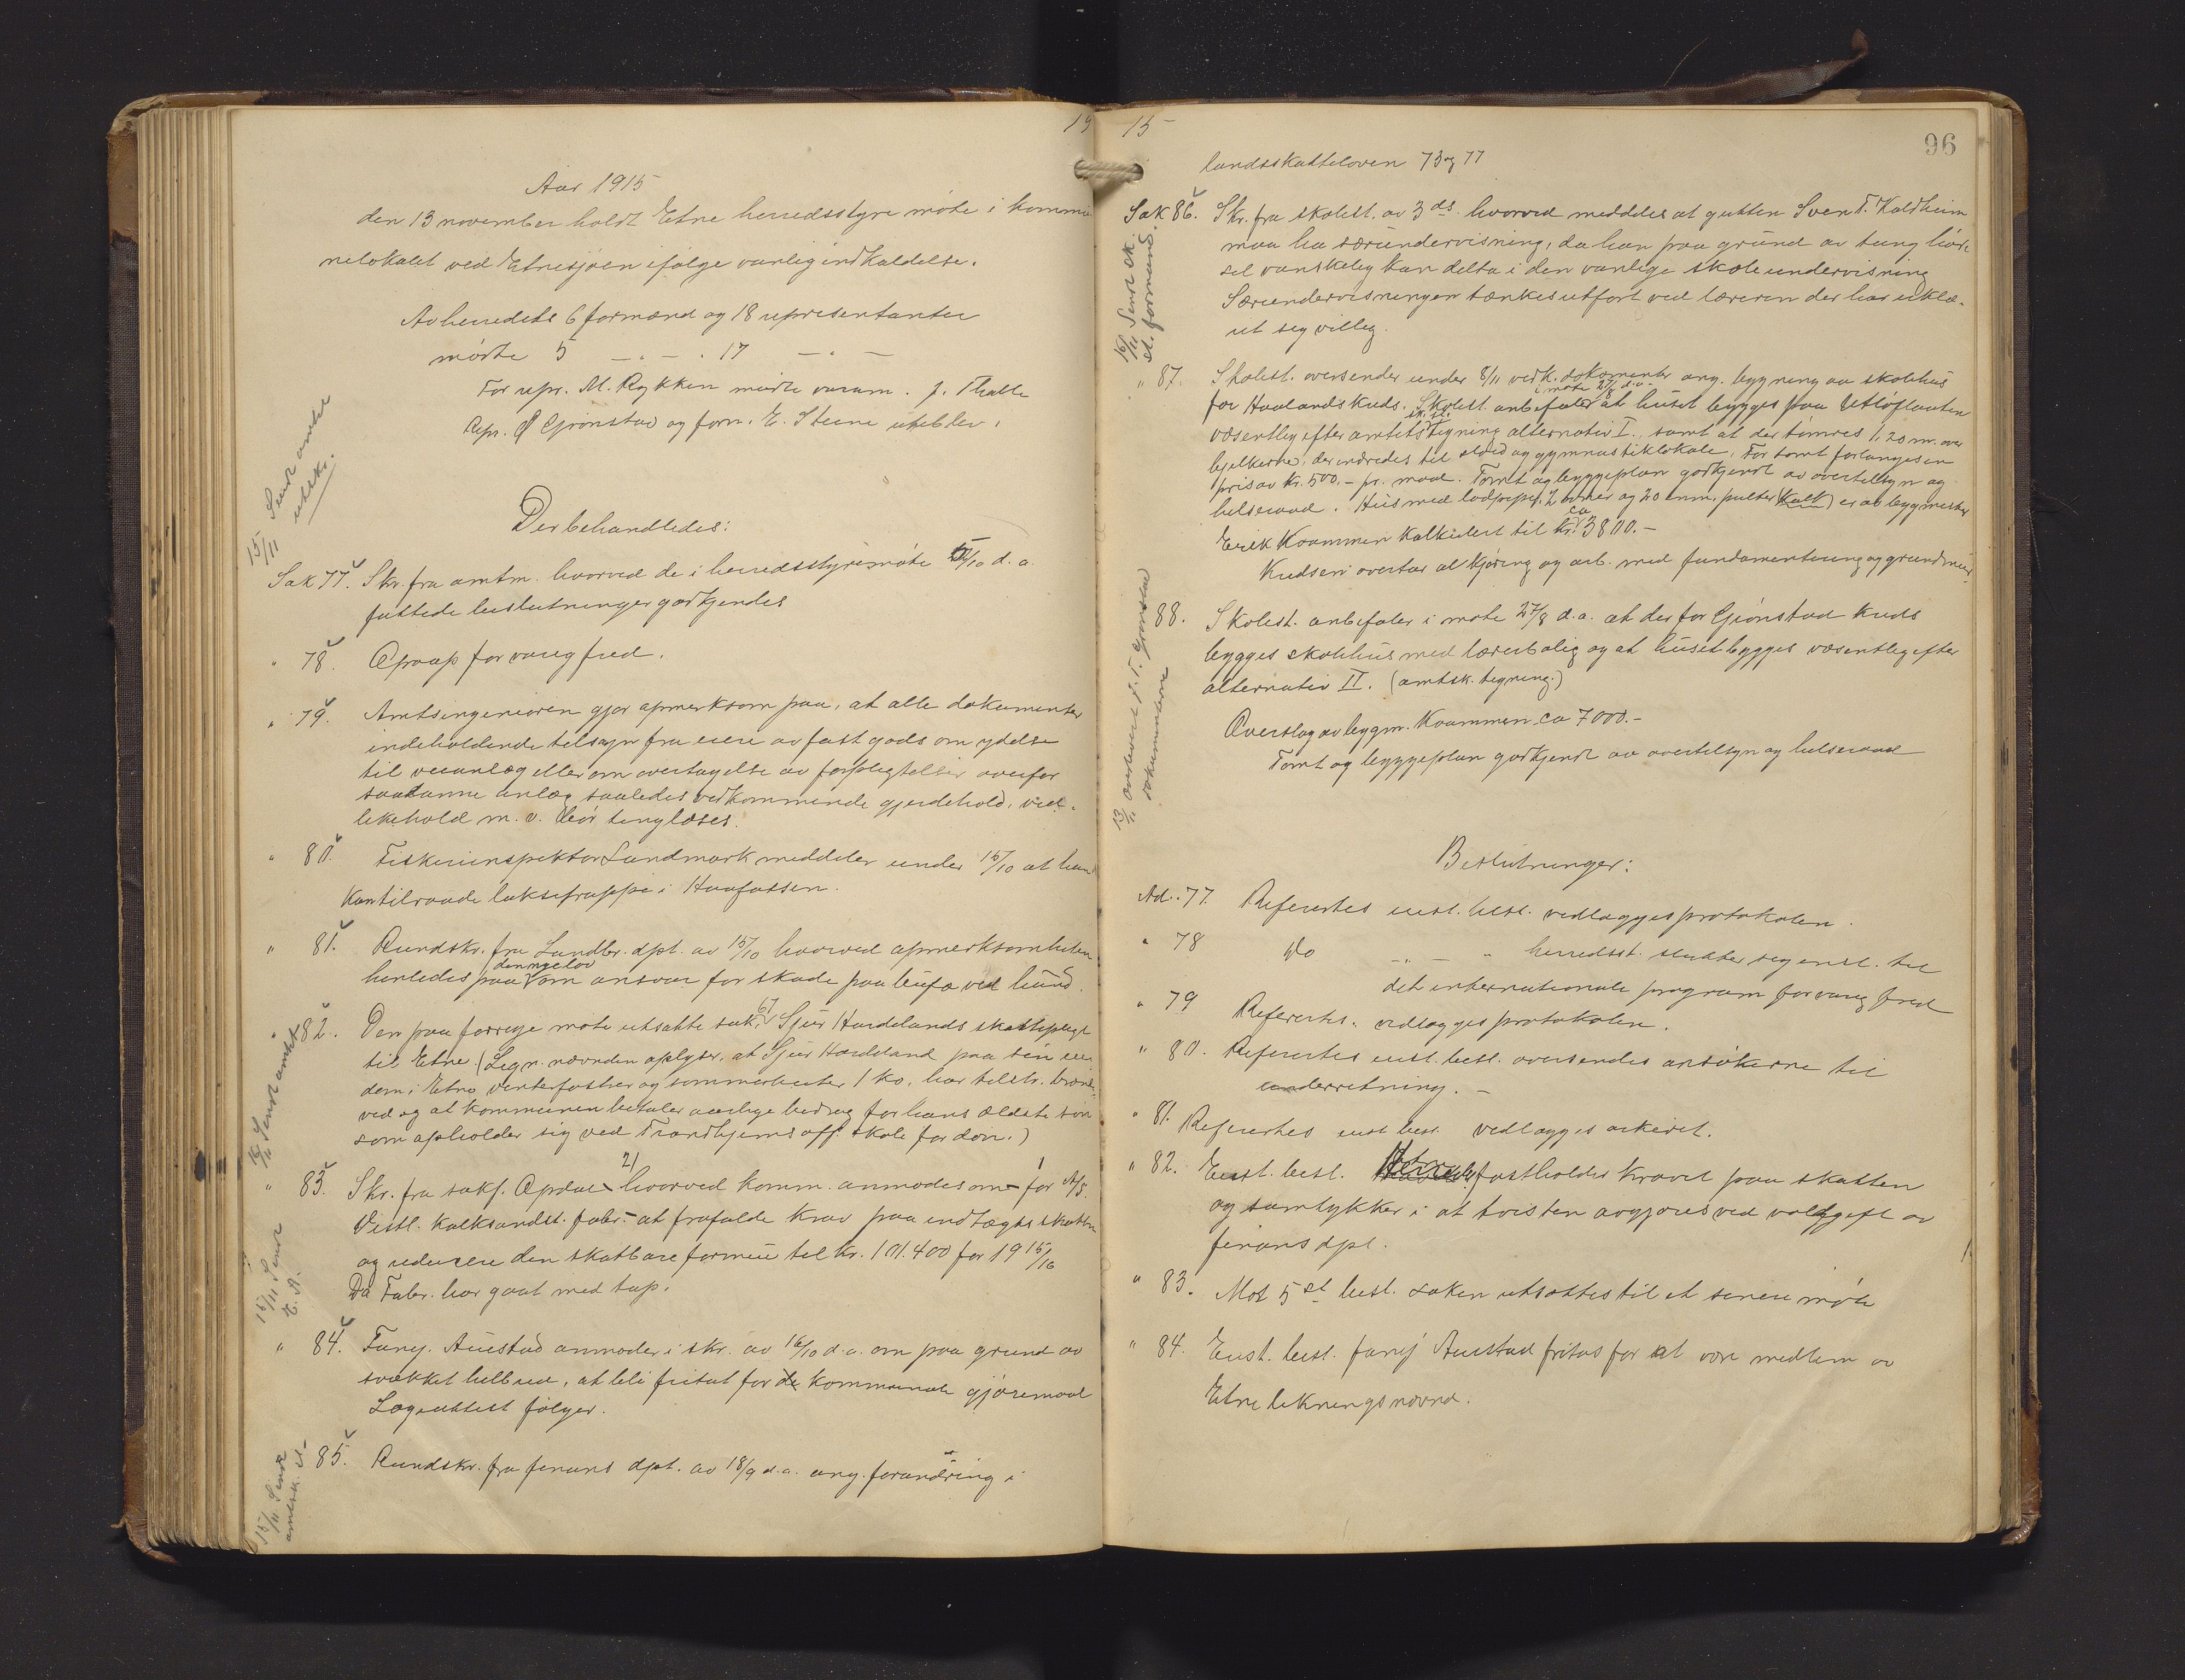 19
Aar 1915
den 13 november holdt Etne herredsstyre møte i kommu
nelokalet ved Etnesjøen ifølge vanlig indkaldelse.
Av herredets 6 formænd og 18 representanter
mødte 5 — " — . 17 — " —
For repr. M. Rykken mødte varam. J. Thalle
Repr. Ø Grønstad og form. E. Steine uteblev.
15/11 Sendt amtet
utskr.
Der behandledes:
Sak 77. Skr. fra amtm. hvorved de i herredsstyremøte 5/10 d. a.
fattede beslutninger godkjendes
" 78. Opraap for varig fred.
" 79. Amtsingeniøren gjør opmerksom paa, at alle dokumenter
indeholdende tilsagn fra eiere av fast gods om ydelse
til veianlæg eller om overtagelse av forpligtelser overfor
saadanne anlæg saaledes vedkommende gjerdehold, ved-
likehold m. v. bør tinglæses.
" 80. Fiskeriinspektør Landmark meddeler under 15/10 at han
kan tilraade laksetrappe i Haafossen.
" 81. Rundskr. fra Landbr. dpt. av 15/10 hvorved opmerksomheten
henledes paa den nye lov om ansvar for skade paa bufæ ved hund.
" 82. Den paa forrige møte utsatte sak 67 Sjur Hardelands skattepligt
til Etne. (Lign. nævnden oplyser, at Sjur Hardeland paa sin eien
dom i Etne vinterfostrer og sommerbeiter 1 ko, har tilstr. brænde-
ved og at kommunen betaler aarlige bidrag for hans ældste søn
som opholder sig ved Trondhjems off. skole for døve.)
16/11 Sendt amtet
" 83. Skr. fra sakf. Opdal 21/ hvorved komm. anmodes om - for A/S.
Vestl. kalksandst. fabr. - at frafalde krav paa indtægtsskatten
og reducere den skatbare formue til kr. 101.400 for 1915/16
Da Fabr. har gaat med tap.
15/11 Sendt
E. A.
" 84. Tønj. Austad anmoder i skr. av 16/10 d. a. om paa grund av
svækket helbred, at bli fritat for de kommunale gjøremaal
Lægeattest følger.
" 85. Rundskr. fra finans dpt. av 18/9 d. a. ang. forandring i
15/11 Sendt
15
96
landsskatteloven 73 og 77
Sak 86. Skr. fra skolest. av 3 ds. hvorved meddeles at gutten Sven T. Kaldheim
maa ha særundervisning, da han paa grund av tung hør-
sel vanskelig kan delta i den vanlige skoleundervisning
Særundervisningen tænkes utført ved læreren der har erklæ-
ret seg villig.
16/11 Sendt sk.
st. formand.
" 87. Skolest. oversender under 8/11 vedk. dokumenter ang. bygning av skolehus
for Haalands kreds. Skolest. anbefaler i møte 27/8 d. a. at huset bygges paa Utløflaaten
væsentlig efter amtets sk. st. tegning alternativ I., samt at der tømres 1,20 m. over
bjelkerne, der indredes til sløid og gymnastiklokale. For tomt forlanges en
pris av kr. 500.- pr. maal. Tomt og byggeplan godkjendt av overtilsyn og
helseraad. Hus med lodpipe, 2 ovner og 20 enm. pulter (kalk) er av bygmester
Erik Kvammen kalkulert til ca kr. 3800.-
Kredsen overtar al kjøring og arb. med fundamentering og grundmur.
88. Skolest. anbefaler i møte 27/8 d. a. at der for Grønstad kreds
bygges skolehus med lærerbolig og at huset bygges væsentlig efter
alternativ II. (amtsk. tegning.)
Overslag av bygm. Kvammen ca 7000.-
Tomt og byggeplan godkjendt av overtilsyn og helseraad
13/11 overlevert J. T. Grønstad
dokumenterne
Beslutninger:
Ad. 77. Refertes enst. besl. vedlægges protokolen.
" 78 Do — " — " herredsst. slutter seg enst. til
det internationale program for varig fred
" 79 Refertes. vedlægges protokolen.
" 80. Refertes enst. besl. oversendes ansøkerne til
underretning. -
" 81. Refertes enst besl. vedlægges arkivet.
" 82. Enst. besl. fastholder kravet paa skatten
og samtykker i at tvisten avgjøres ved voldgift av
finansdpt.
" 83. Mot 5 st. besl. saken utsættes til et senere møte
" 84. Enst. besl. Tønj Austad fritas for at være medlem av
Etne likningsnævnd.